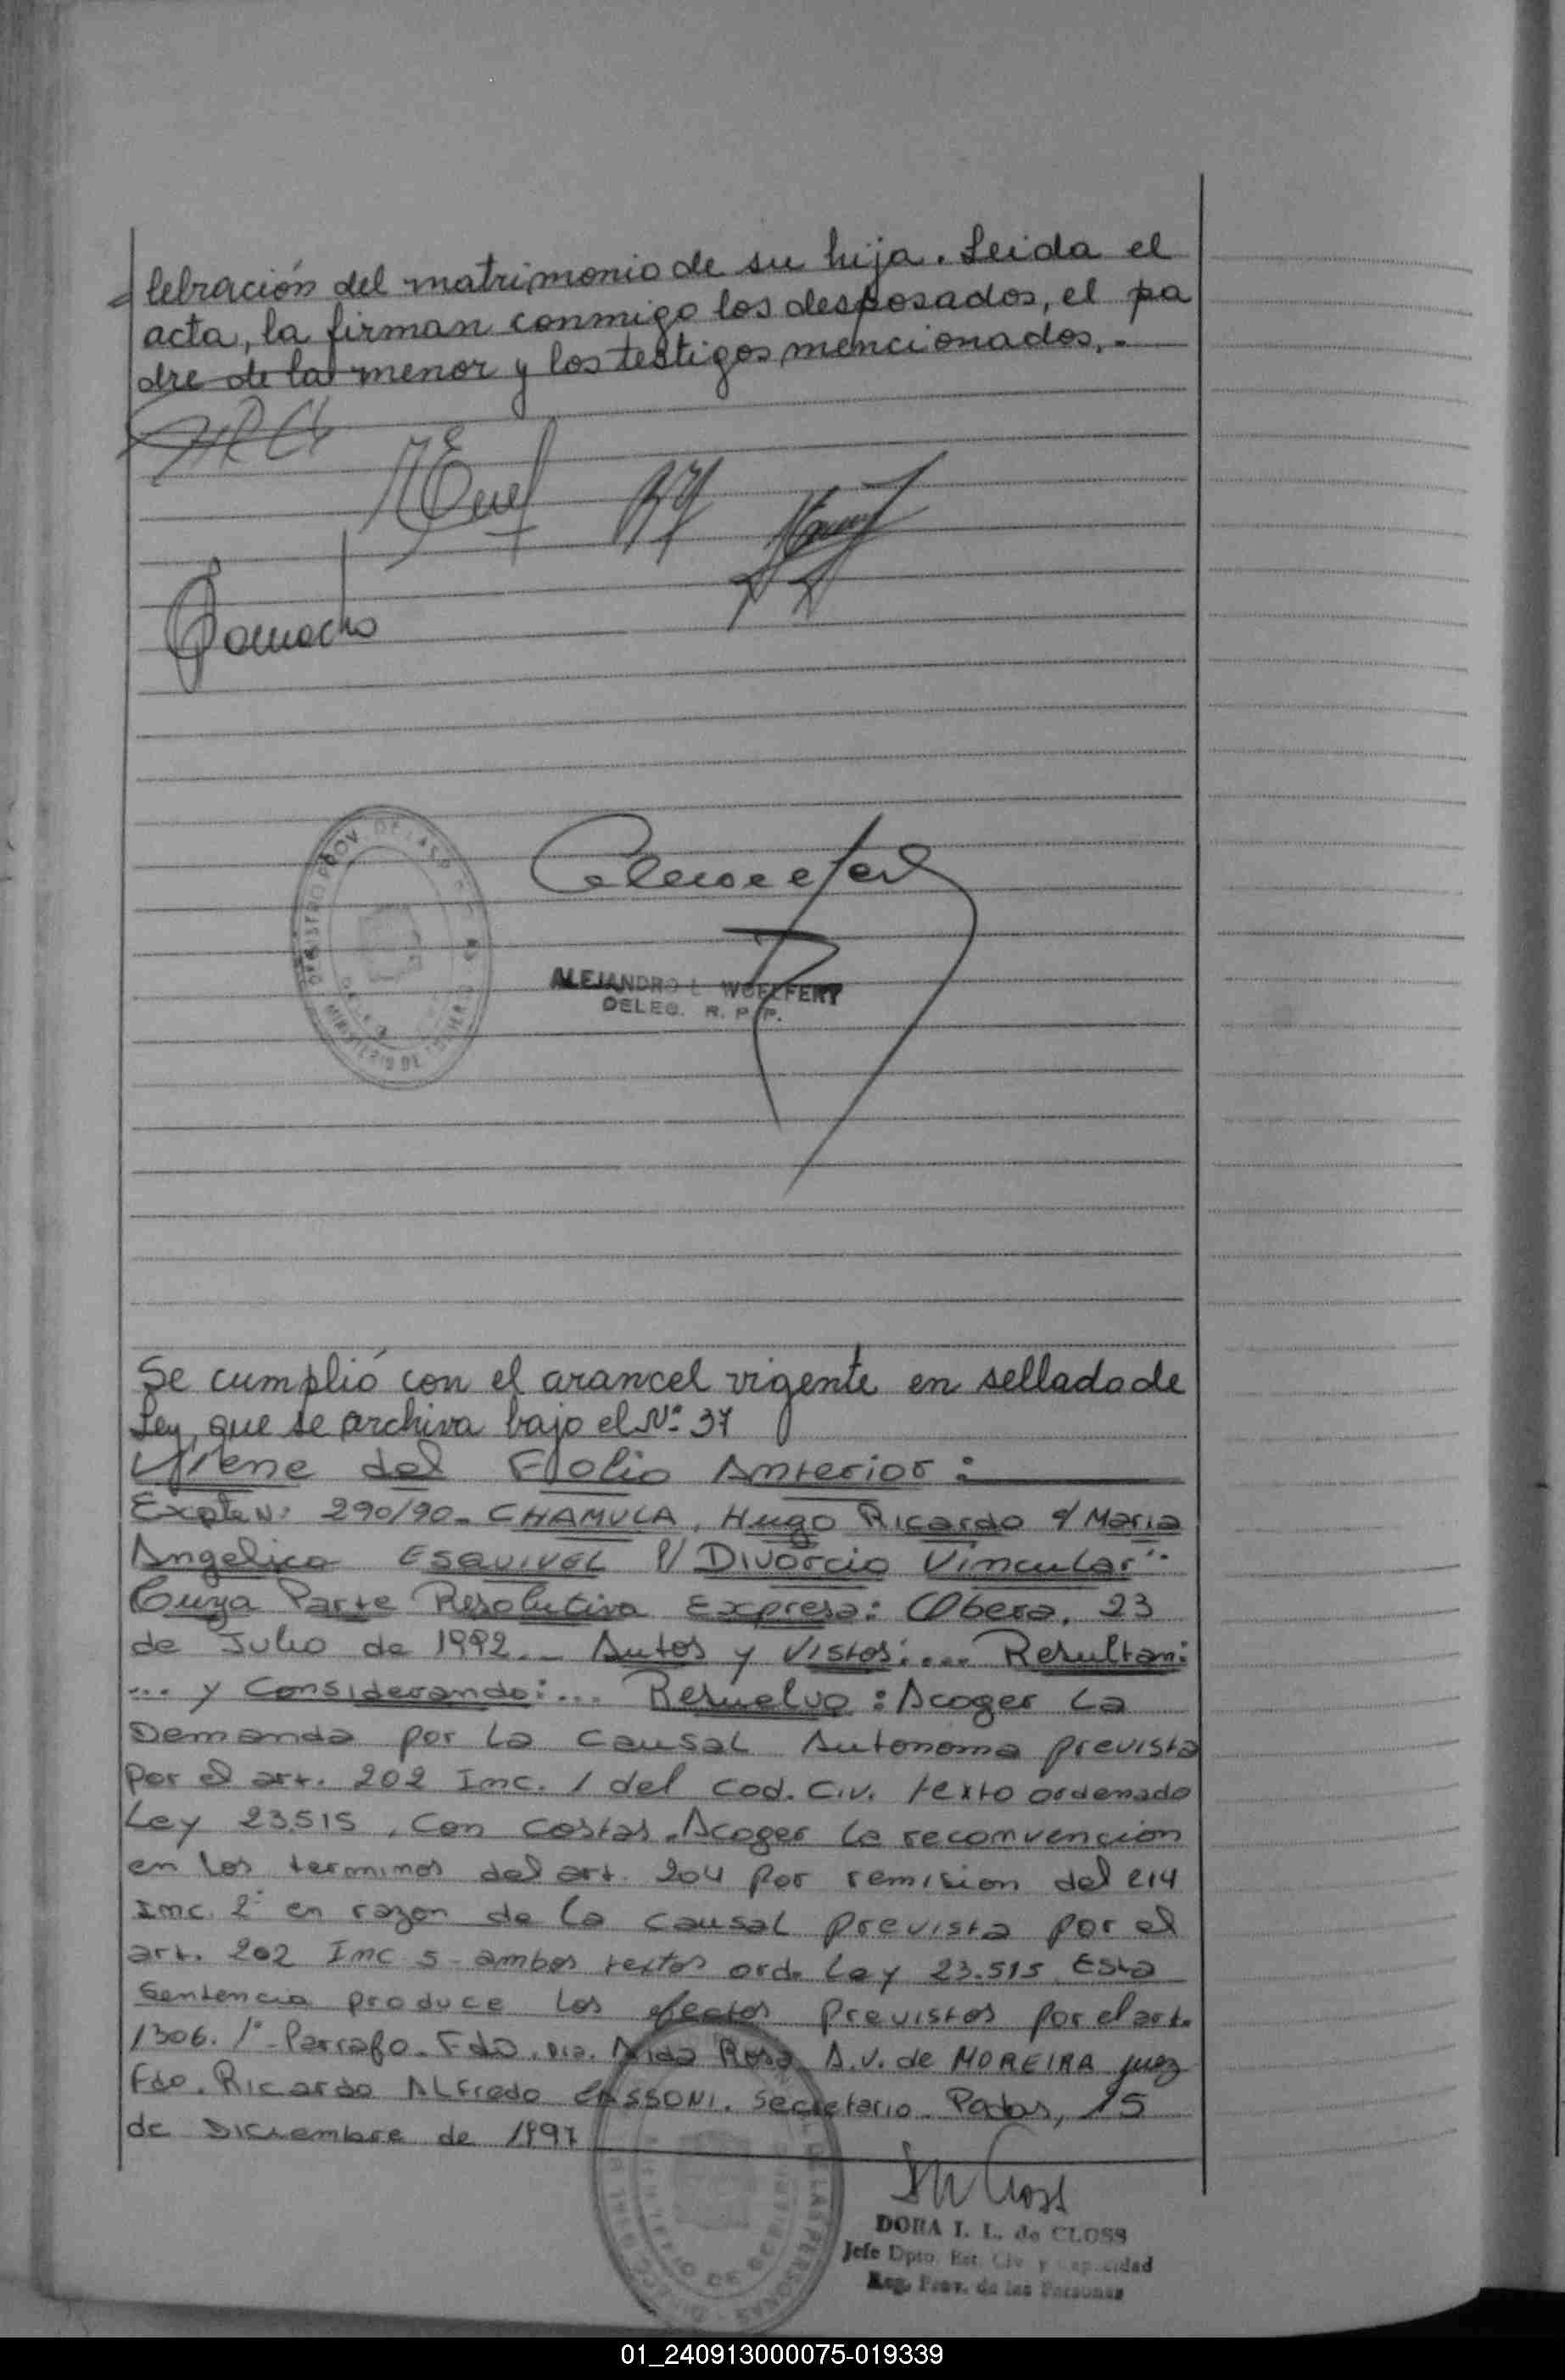 lebración del matrimonio de su hija. Leida el
acta, la firman conmigo los desposados, el pa
dre de la menor y los testigos mencionados,.-
Camacho
ALEJANDRO L WOELFERT
DELEG. R. P. P.
Se cumplió con el arancel vigente en sellado de
Ley, que se archiva bajo el Nº 37
Viene del Folio Anterior:
Expte Nº 290/90- CHAMULA, Hugo Ricardo c/ Maria
Angelica ESQUIVEL P/ Divorcio Vincular".
Cuya Parte Resolutiva Expresa: Obera, 23
de Julio de 1992.- Autos y Vistos:.... Resultan:
... y Considerando:... Resuelvo: Acoger La
Demanda por La Causal Autonoma prevista
por el art. 202 Inc. 1 del Cod. Civ. texto ordenado
Ley 23.515, Con costas. Acoger la reconvencion
en los terminos del art. 204 por remision del 214
Inc. 2º en razon de la causal prevista por el
art. 202 Inc 5- ambos textos ord. Ley 23.515 Esta
Sentencia produce los efectos previstos por el art.
1306. 1º- Parrafo- Fdo. Dra. Aida Rosa A.V. de MOREIRA juez
Fdo. Ricardo Alfredo CASSONI. Secretario- Podas, 15
de Diciembre de 1997
DORA I. L. de CLOSS
Jefe Dpto. Est. Civ. y Capacidad
Reg. Prov. de las Personas
01_240913000075-019339